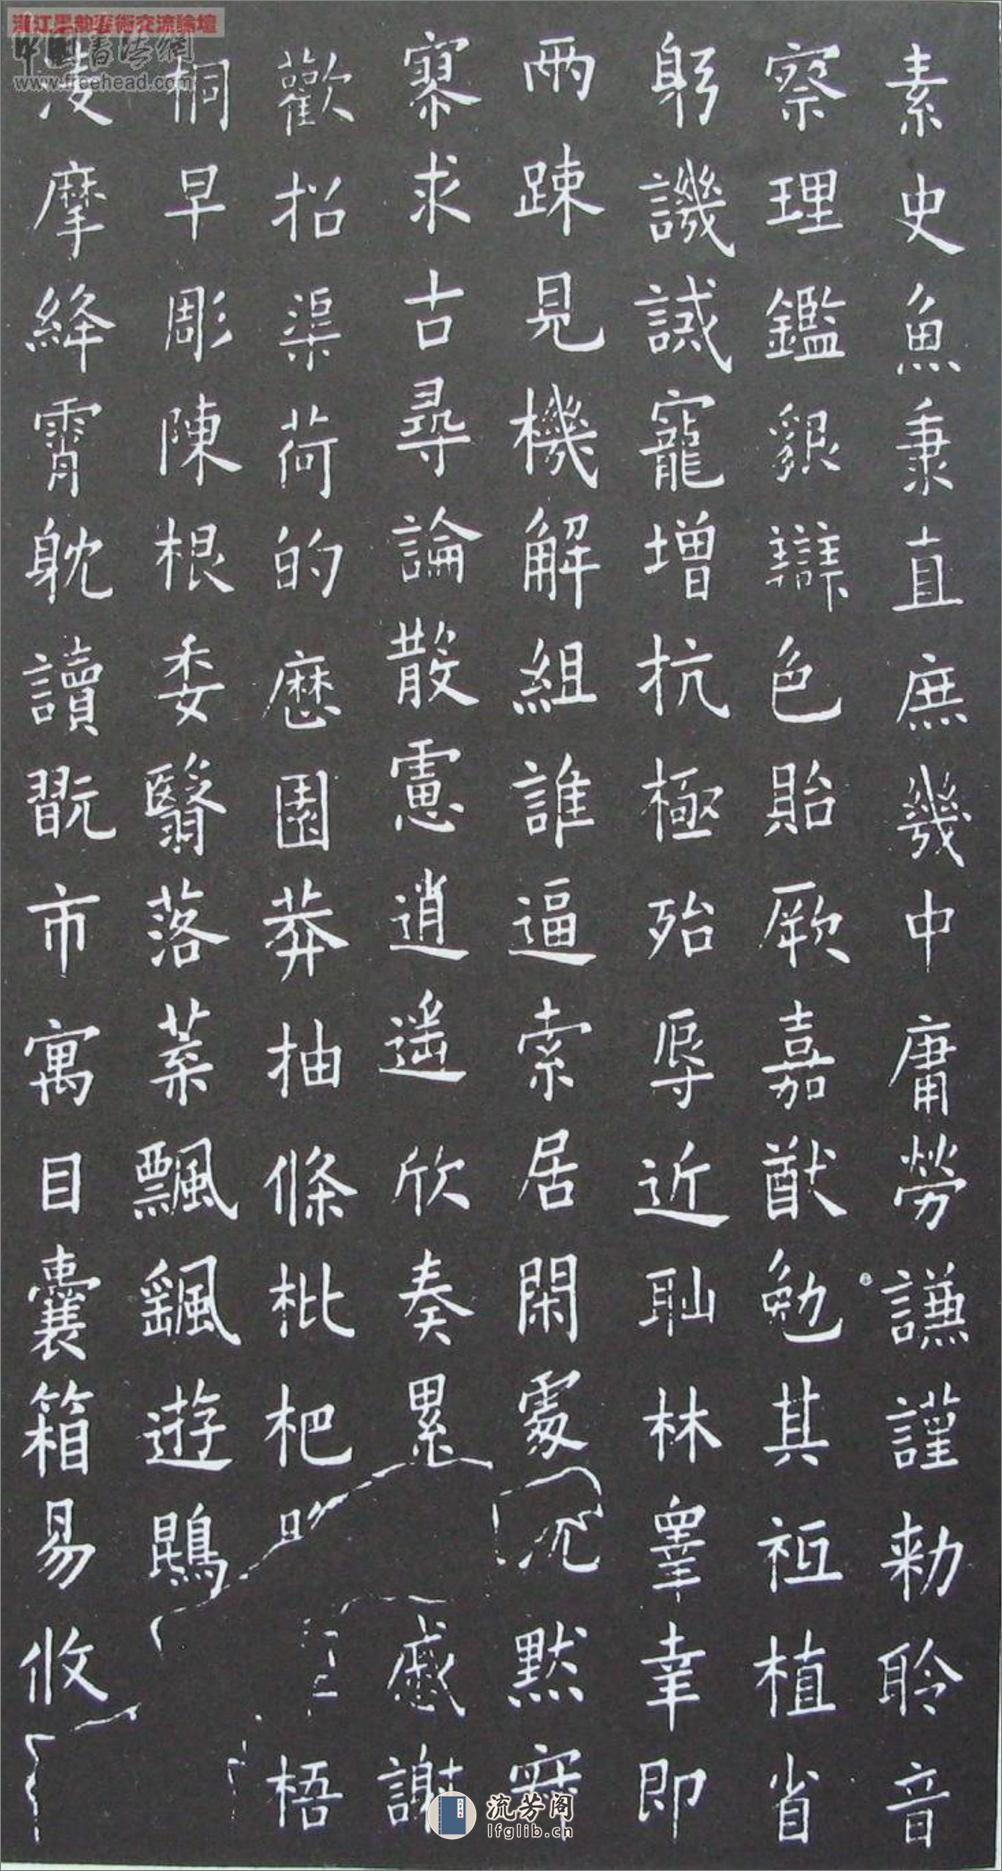 素史魚秉直庶幾中庸勞謙謹勅聆音
察理鑑貌辯色貽厥嘉猷勉其祗植省
躬譏誡寵增抗極殆辱近恥林睪幸即
兩踈見機解組誰逼索居閑處沉默寂
寥求古尋論散慮逍遥欣奏累 慼謝
歡招渠荷的歷園莽抽條枇杷 梧
桐早彫陳根委翳落葉飄颻遊鵾
凌摩絳霄躭讀翫市寓目囊箱易攸
浙江墨韵藝術交流論壇
中國書法網
www.freehead.com
流芳阁
lfglib.cn